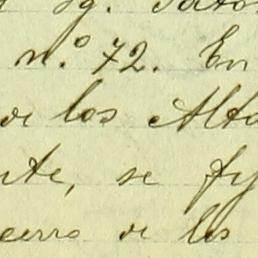 n.º 72. En
de los Alto
nte, se fij
cerro de los